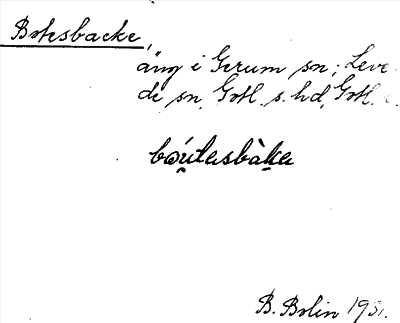 Botesbacke,
äng i Gerum sn; Leve-
de sn, Gotl. s. hd, Gotl. l.
bǫ́u̯tesbàk̯e
B. Bolin 1931.